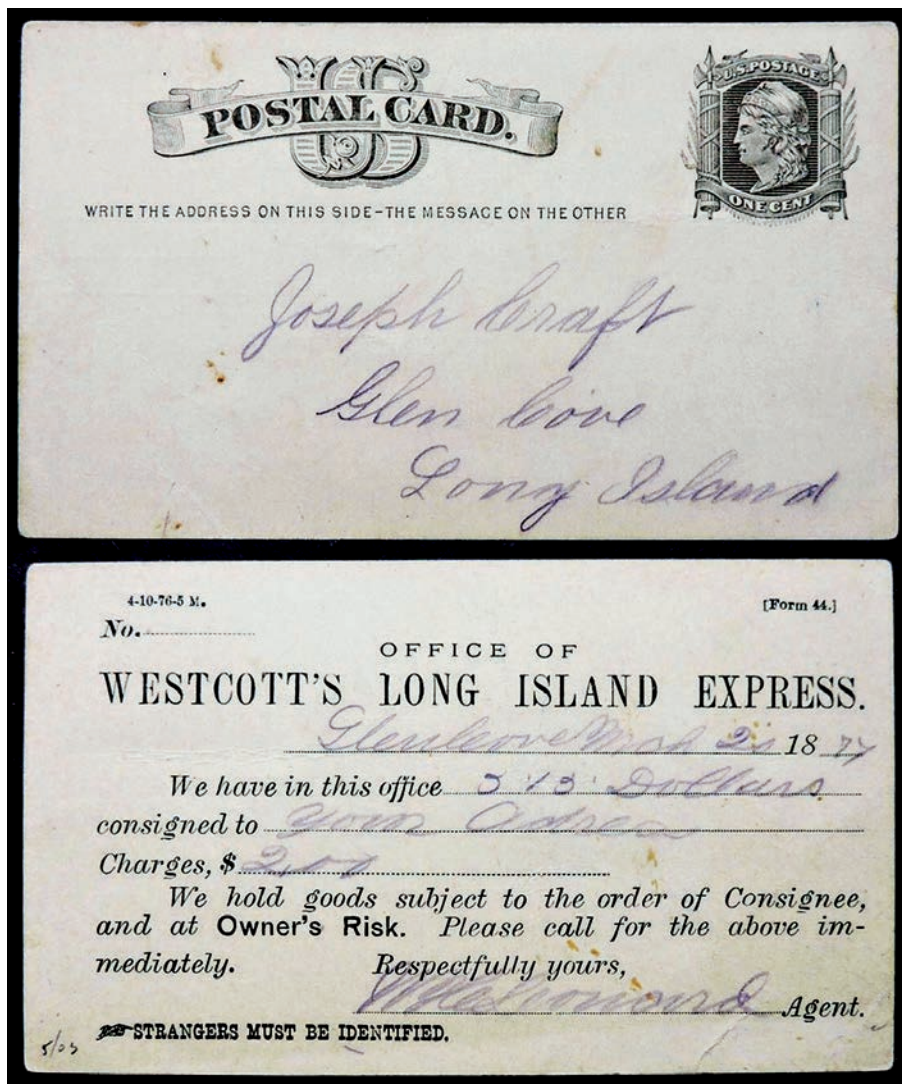 US
POSTAL CARD.
U.S. POSTAGE
ONE CENT
WRITE THE ADDRESS ON THIS SIDE-THE MESSAGE ON THE OTHER
Joseph Craft
Glen Cove
Long Island
4-10-76-5 M.
[Form 44.]
No.
OFFICE OF
WESTCOTT'S LONG ISLAND EXPRESS.
Glen Cove 18 77
We have in this office Dollars
consigned to your
Charges, $ 2,00
We hold goods subject to the order of Consignee,
and at Owner's Risk. Please call for the above im-
mediately. Respectfully yours,
Agent.
STRANGERS MUST BE IDENTIFIED.
5/03